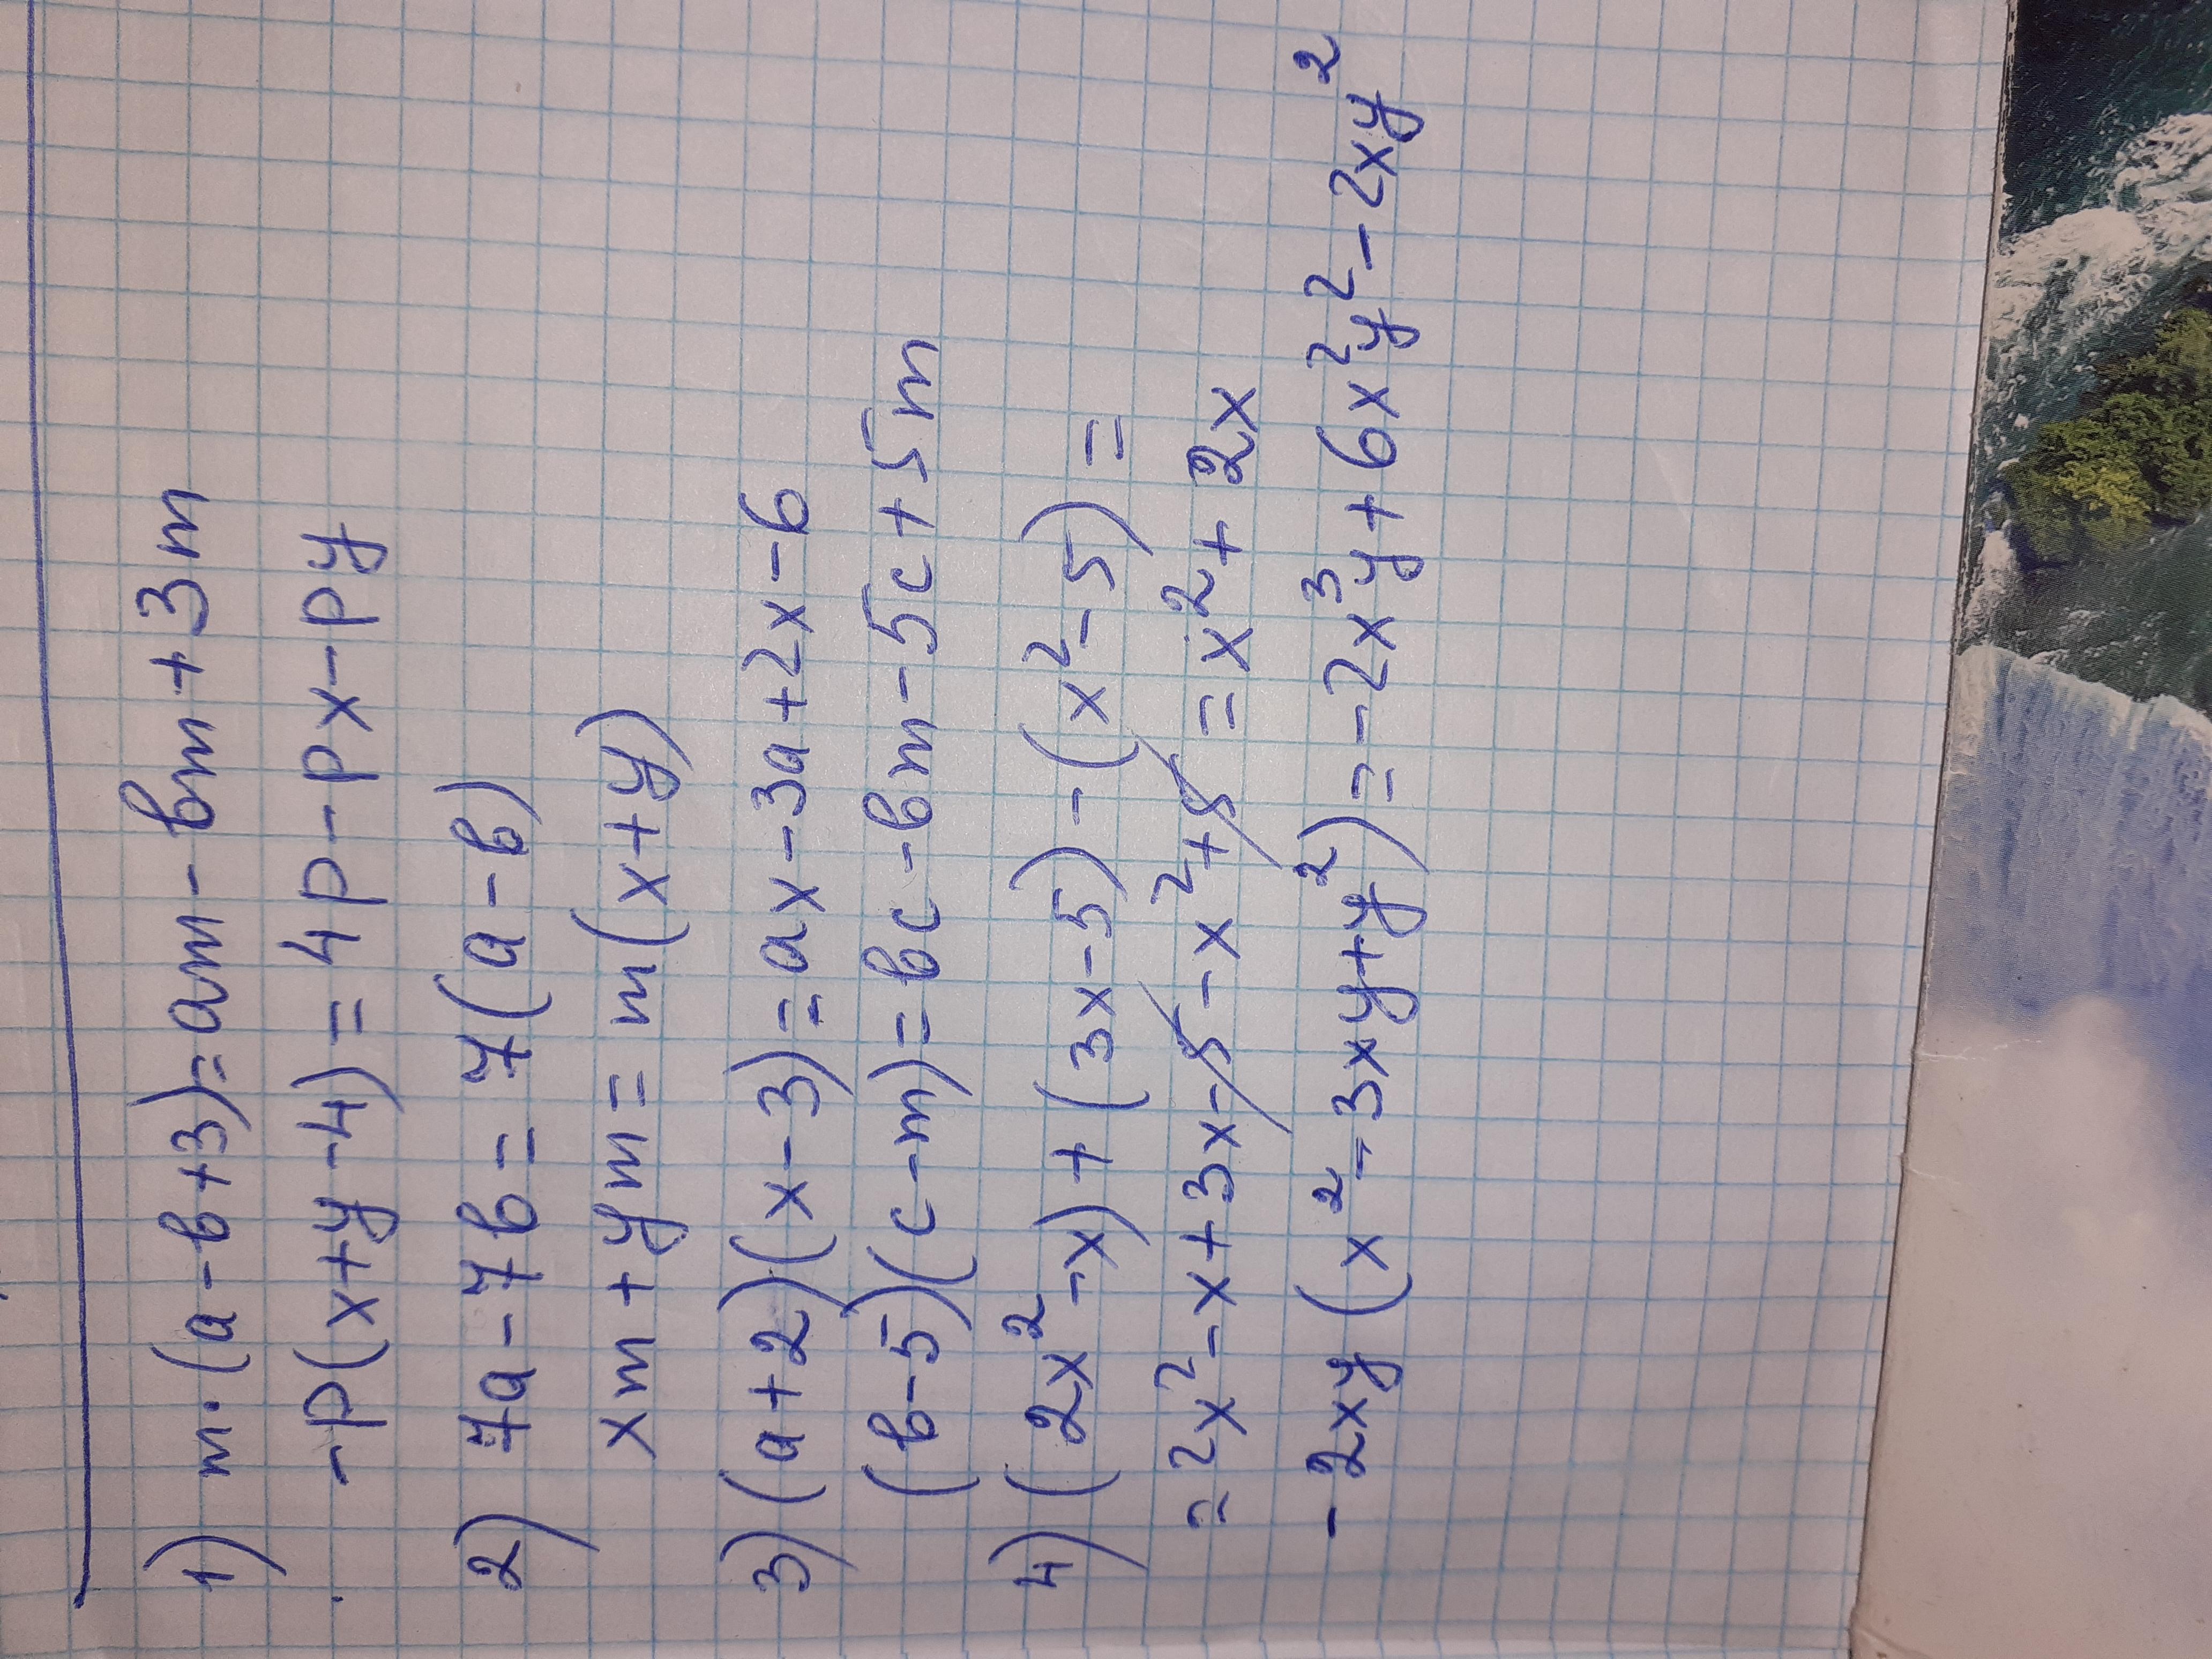 1) m·(a-b+3)=am-bm+3m
-p(x+y-4)=4p-px-py
2) 7a-7b=7(a-b)
xm+ym=m(x+y)
3) (a+2)(x-3)=ax-3a+2x-6
(b-5)(c-m)=bc-bm-5c+5m
4) (2x²-x)+(3x-5)-(x²-5)=
=2x²-x+3x-5-x²+5=x²+2x
-2xy(x²-3xy+y²)=-2x³y+6x²y²-2xy²